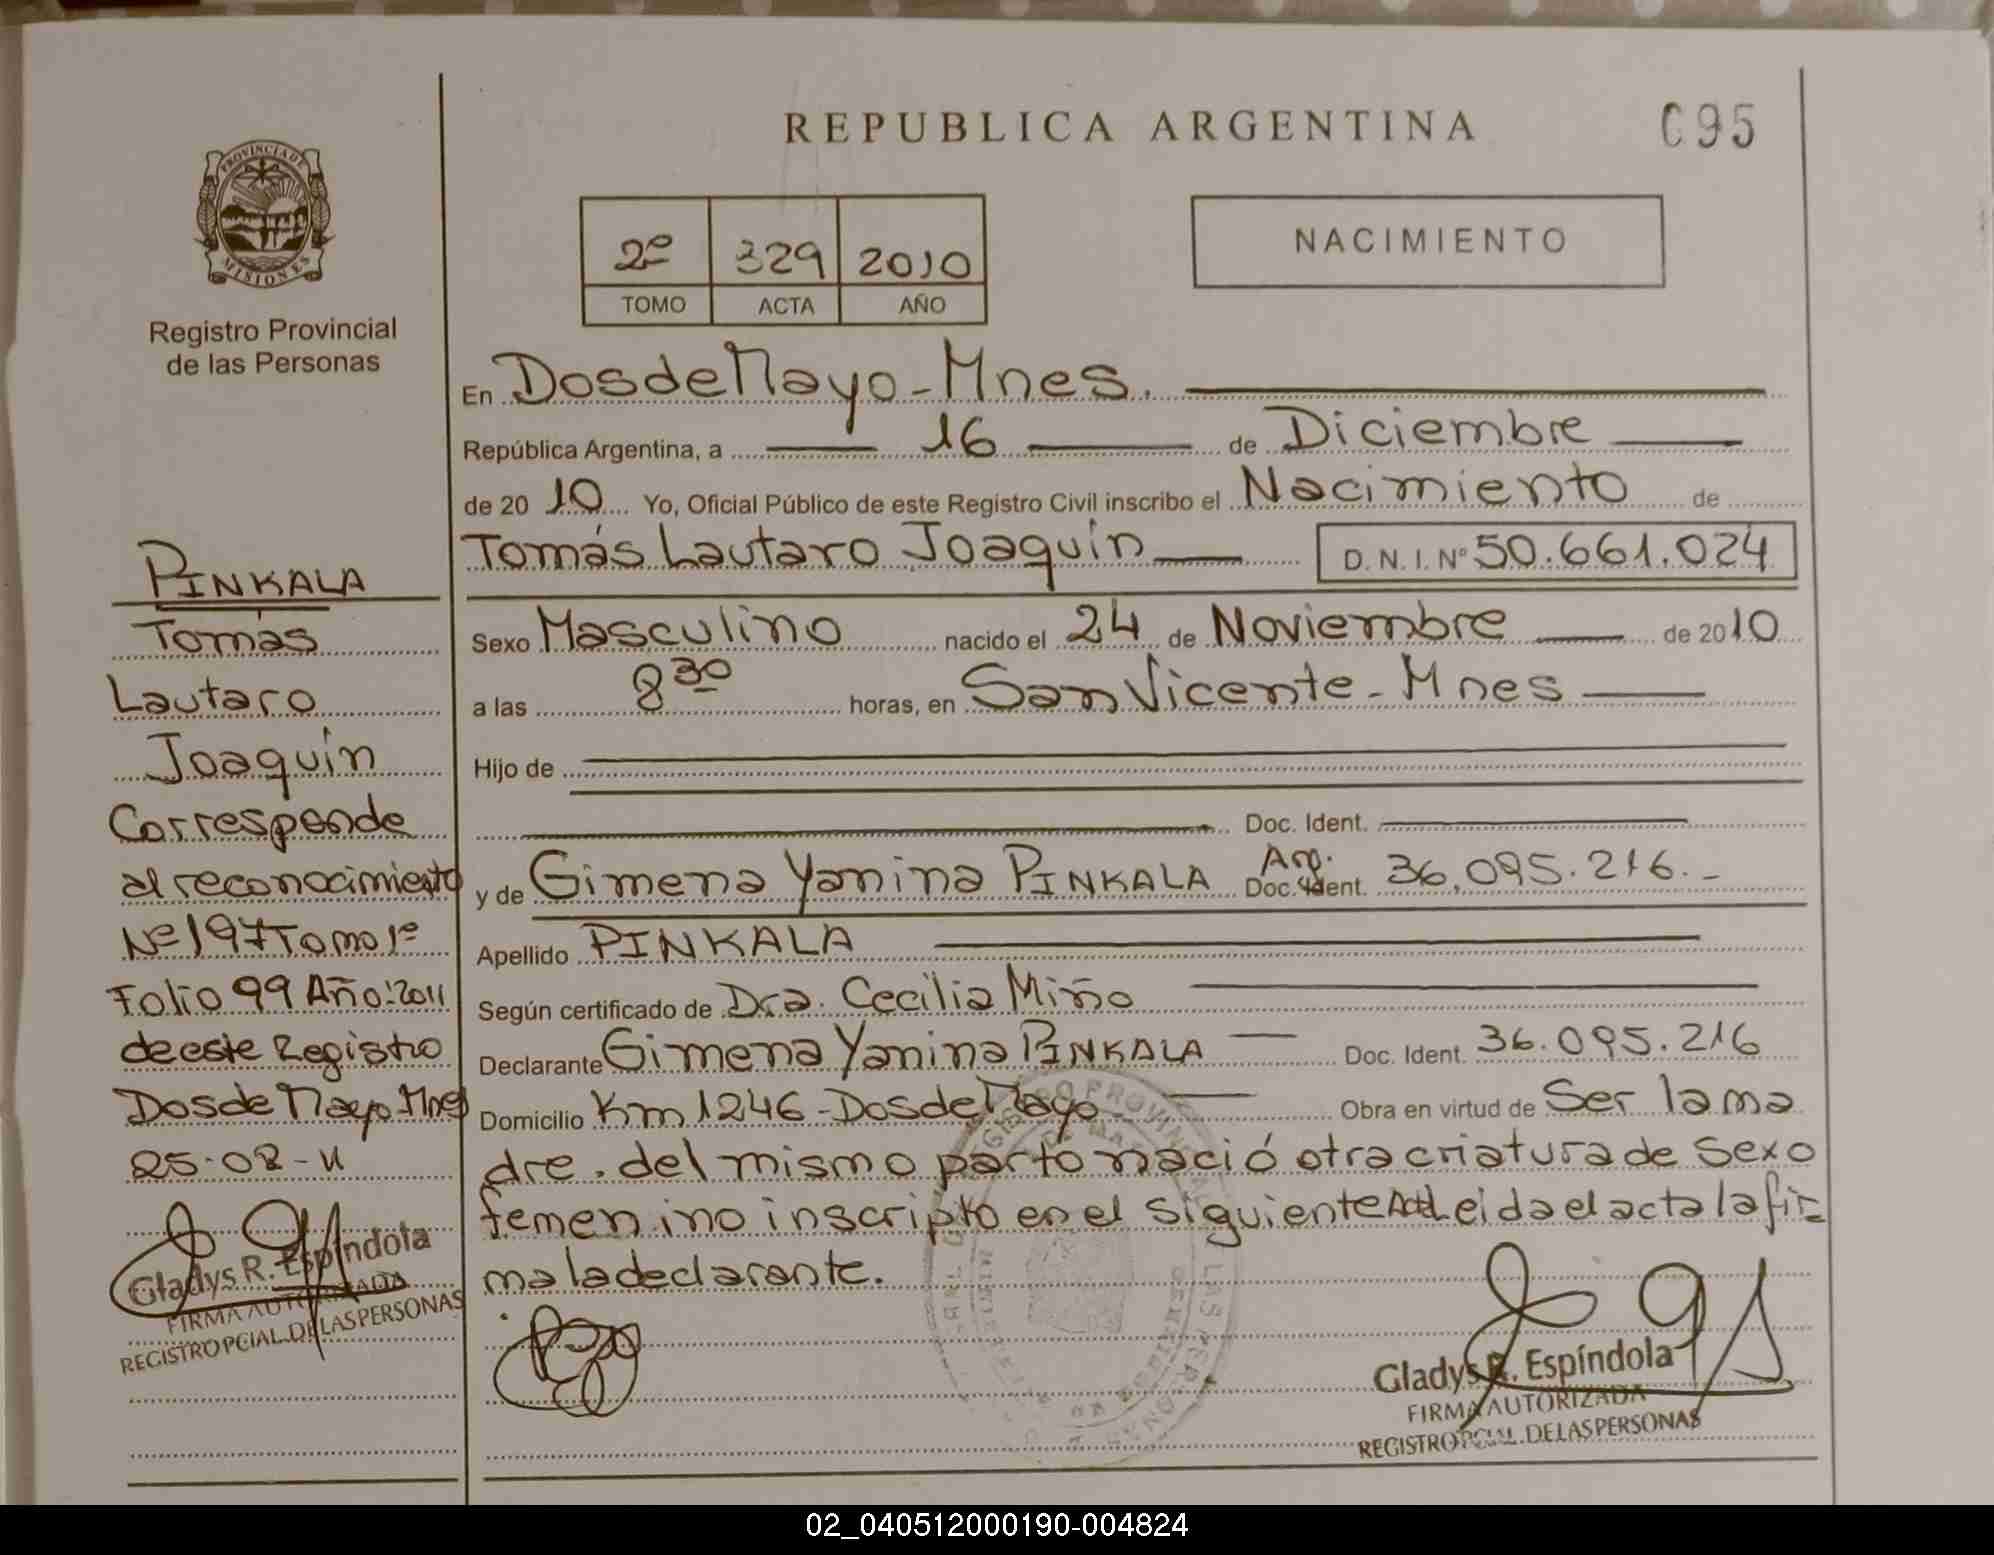 REPUBLICA ARGENTINA
095
PROVINCIA DE
MISIONES
Registro Provincial
de las Personas
2º 329 2010
TOMO ACTA AÑO
NACIMIENTO
En Dos de Mayo - Mnes.
República Argentina, a 16 de Diciembre
de 2010 Yo, Oficial Público de este Registro Civil inscribo el Nacimiento de
Tomás Lautaro Joaquín D. N. I. Nº 50.661.024
Sexo Masculino nacido el 24 de Noviembre de 2010
a las 8 30 horas, en San Vicente - Mnes
Hijo de
Doc. Ident.
y de Gimena Yanina PINKALA Arg. Doc. Ident. 36.095.216.-
Apellido PINKALA
Según certificado de Dra. Cecilia Miño
Declarante Gimena Yanina PINKALA Doc. Ident. 36.095.216
Domicilio Km 1246 - Dos de Mayo Obra en virtud de Ser la ma
dre. del mismo parto nació otra criatura de sexo
femenino inscripto en el siguiente Leida el acta la fir
ma la declarante.
Gladys R. Espíndola
FIRMA AUTORIZADA
REGISTRO PCIAL. DE LAS PERSONAS
PINKALA
Tomás
Lautaro
Joaquín
Corresponde
al reconocimiento
Nº 197 Tomo 1º
Folio 99 Año: 2011
de este Registro
Dos de Mayo Mnes
25-02-11
Gladys R. Espíndola
FIRMA AUTORIZADA
REGISTRO PCIAL. DE LAS PERSONAS
02_040512000190-004824